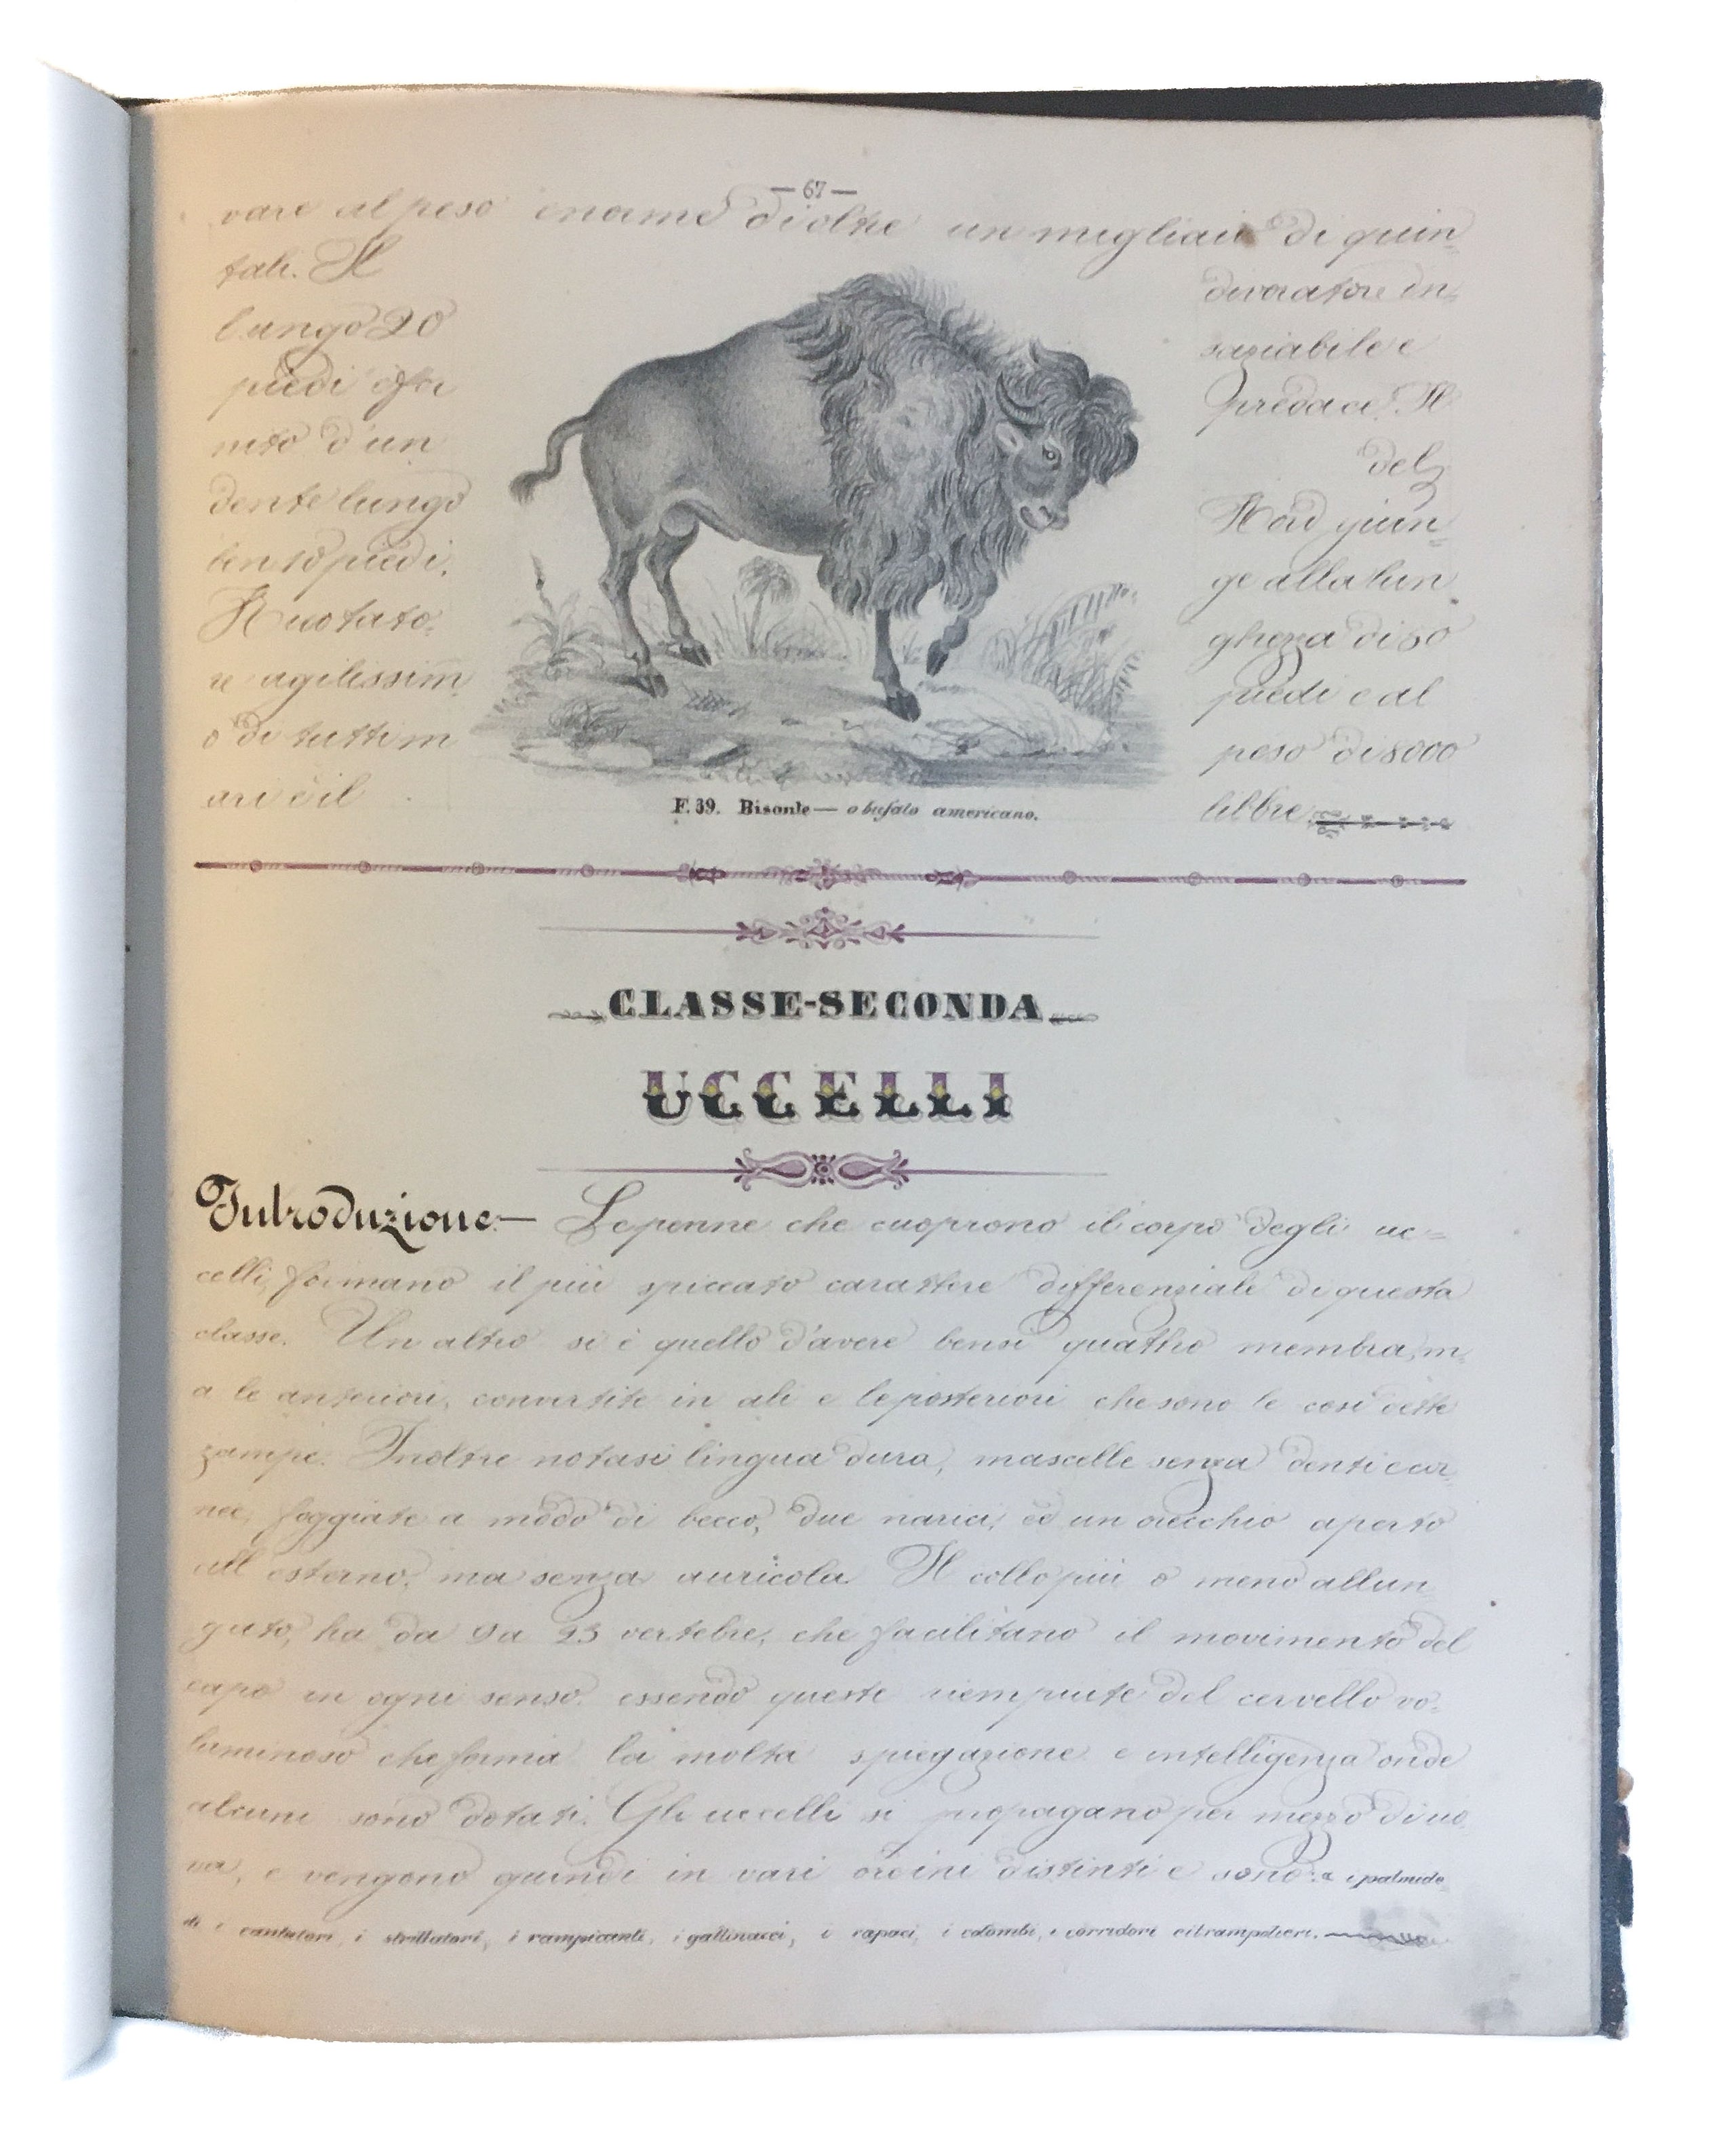 — 67 —
vare al peso enorme di oltre un migliaio di quin=
tali. Il
lungo 20
piedi
nito d'un
dente lungo
ben 10 piedi.
Nuotato-
re agilissim
o di tutti m
ari è il
divoratore in=
saziabile e
predace. Il
del=
Nord giun=
ge alla lun
ghezza di 30
piedi e al
peso di 8000
libbre.
F. 39. Bisonte — o bufalo americano.
CLASSE-SECONDA
UCCELLI
Introduzione.— Le penne che cuoprono il corpo degli uc=
celli, formano il più spiccato carattere differenziale di questa
classe. Un altro si è quello d'avere bensì quattro membra, m,
a le anteriori, convertite in ali e le posteriori che sono le così dette
zampe. Inoltre notasi lingua dura, mascelle senza denti cor
nee, foggiate a modo di becco, due narici, ed un orecchio aperto
all'esterno, ma senza auricola. Il collo più o meno allun
gato, ha da 9 a 23 vertebre, che facilitano il movimento del
capo in ogni senso. essendo queste riempiute del cervello vo-
luminoso che forma la molta spiegazione e intelligenza onde
alcuni sono dotati. Gli uccelli si propagano per mezzo di uo
va, e vengono quindi in vari ordini distinti e sono: i palmide
di i cantatori, i strillatori, i rampicanti, i gallinacci, i rapaci, i colombi, i corridori ei trampolieri.